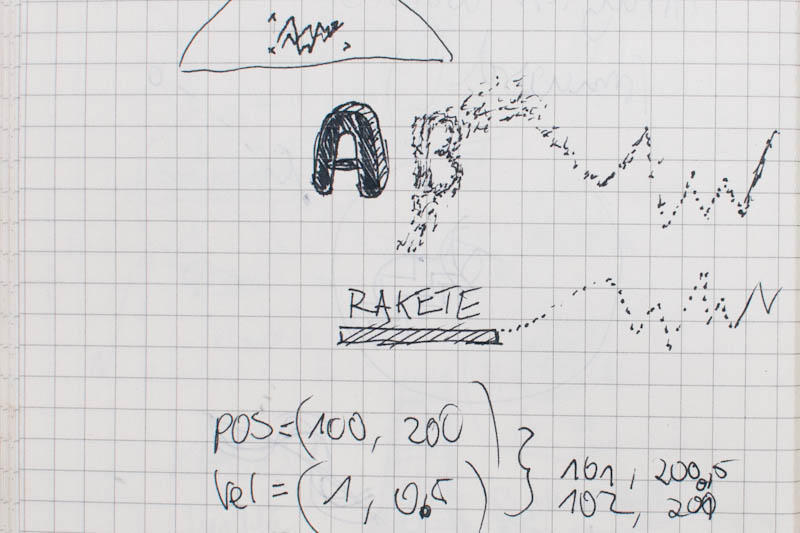 AB
RAKETE
pos=(100, 200)
vel=(1, 0,5)
} 101, 200,5
102, 201